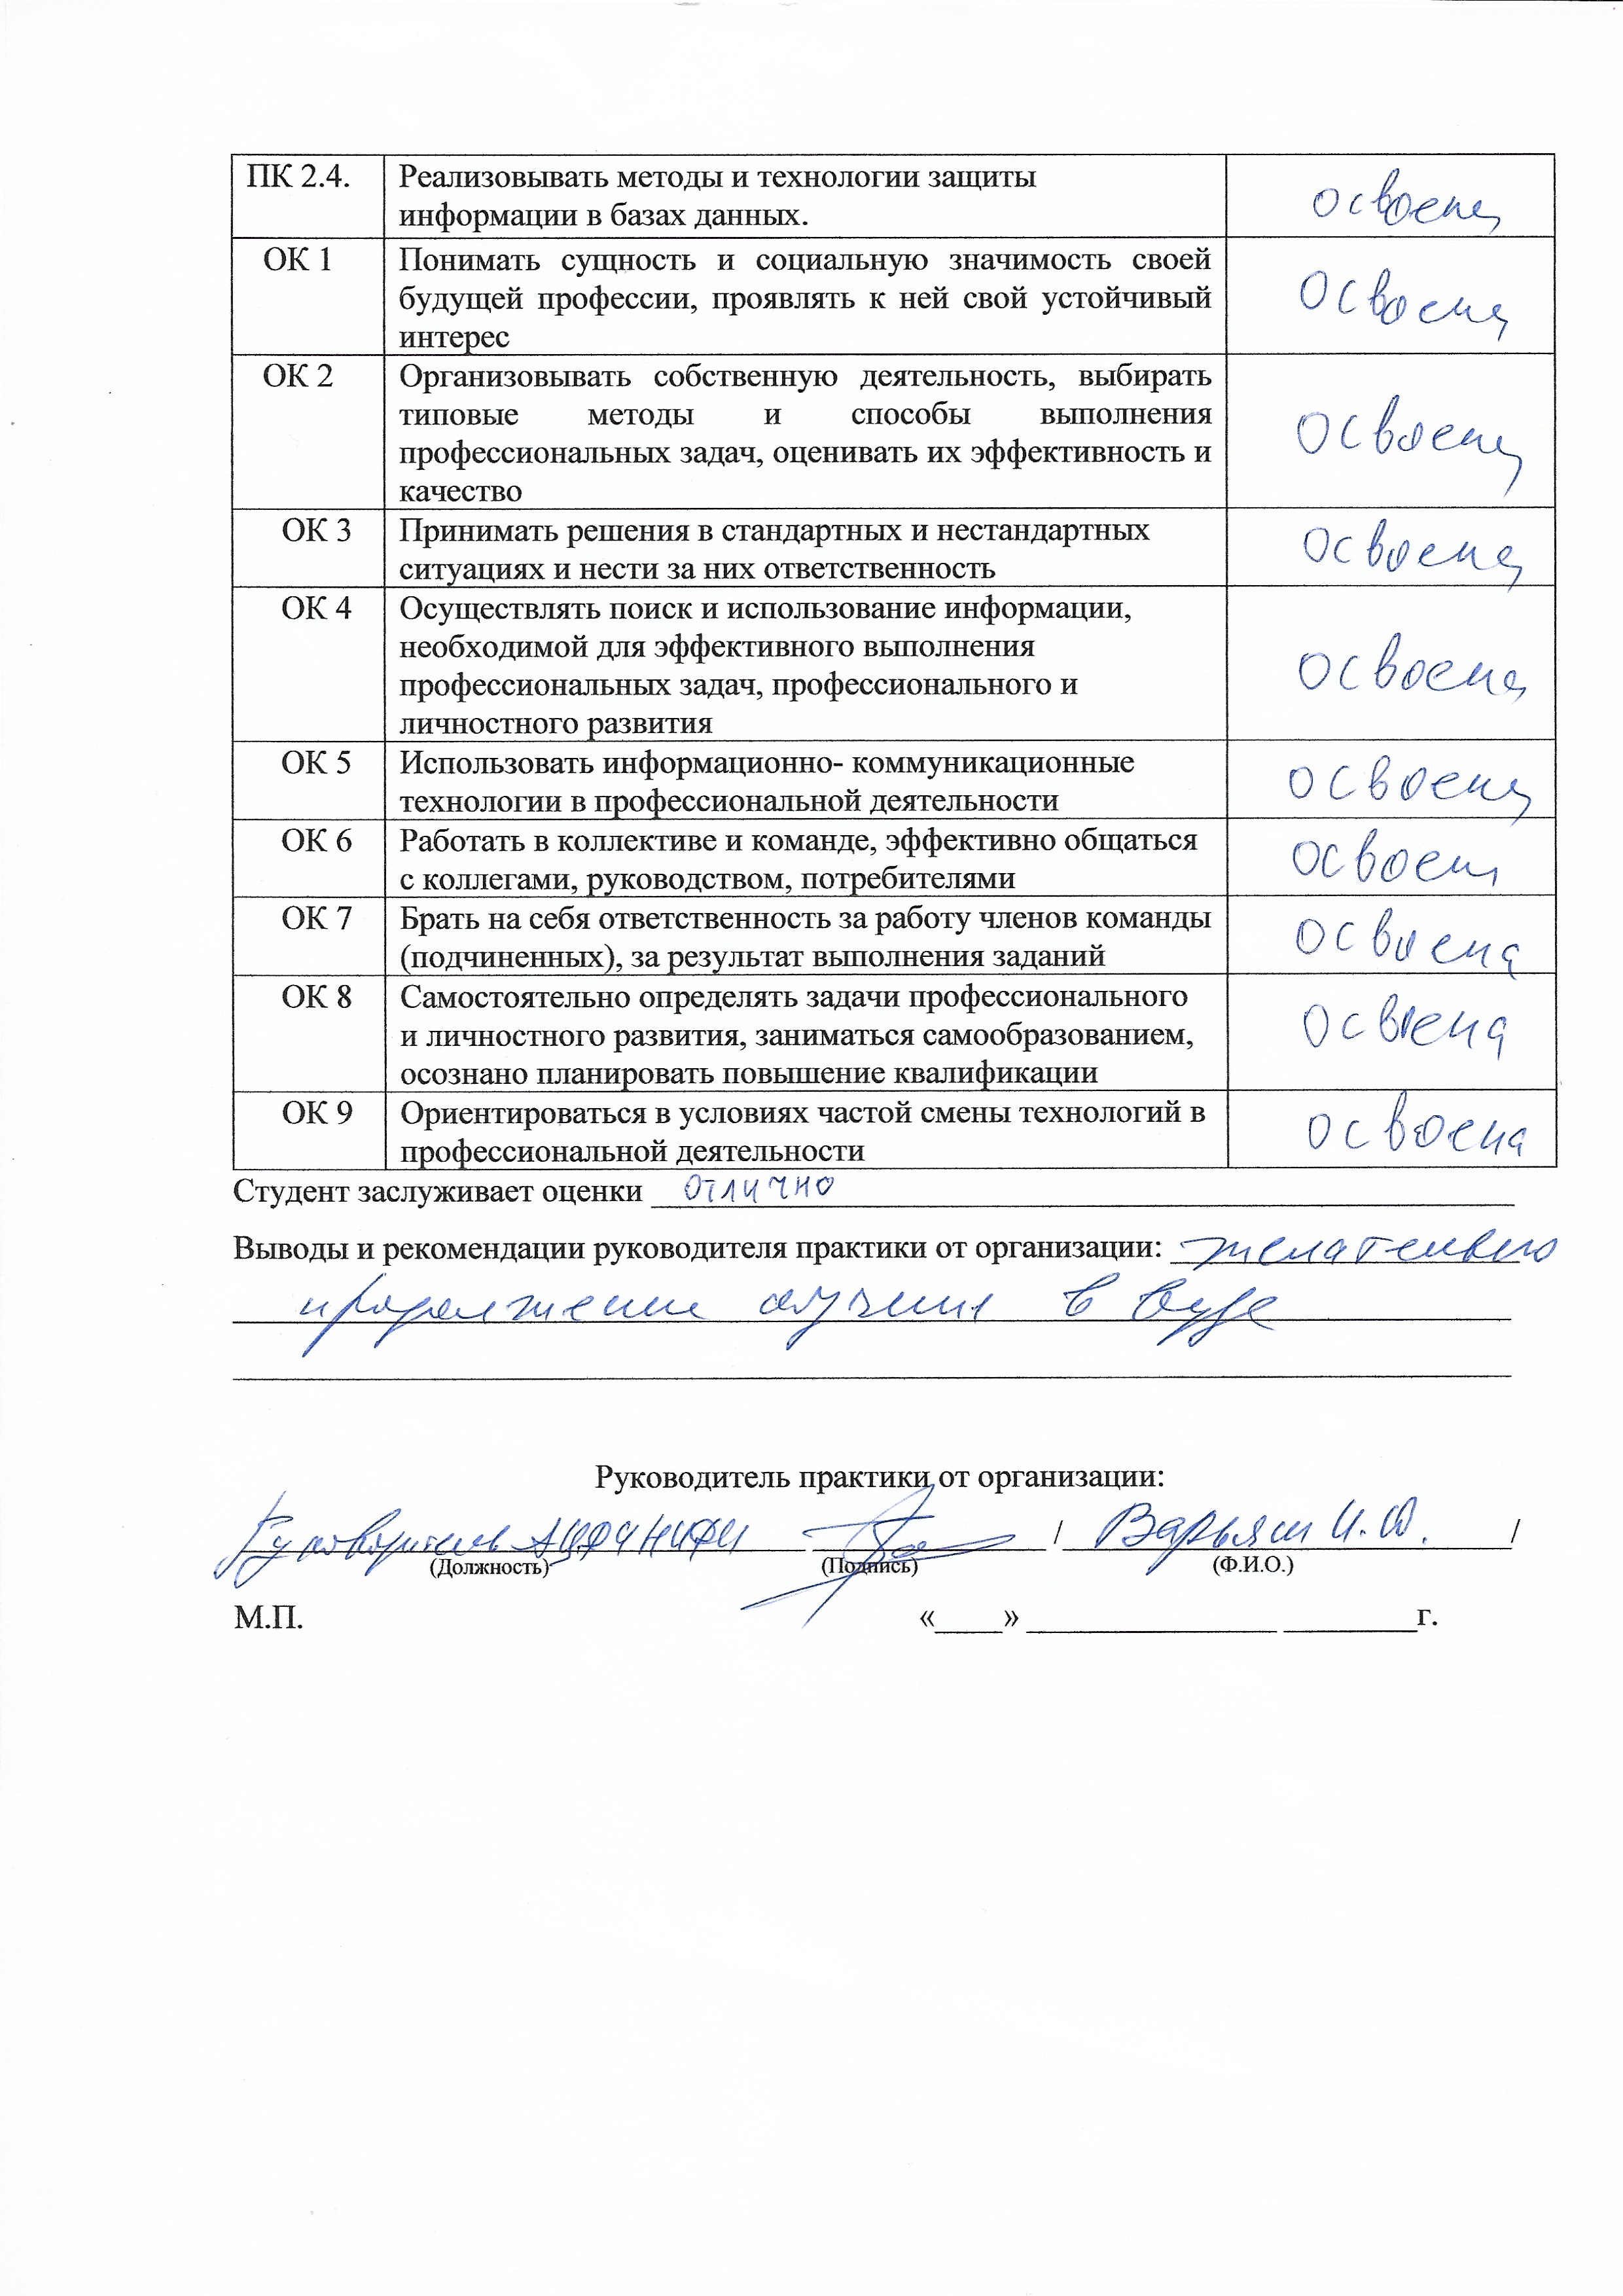 ПК 2.4.
Реализовывать методы и технологии защиты
информации в базах данных.
освоена
ОК 1
Понимать сущность и социальную значимость своей
будущей профессии, проявлять к ней свой устойчивый
интерес
освоена
ОК 2
Организовывать собственную деятельность, выбирать
типовые методы и способы выполнения
профессиональных задач, оценивать их эффективность и
качество
освоена
ОК 3
Принимать решения в стандартных и нестандартных
ситуациях и нести за них ответственность
освоена
ОК 4
Осуществлять поиск и использование информации,
необходимой для эффективного выполнения
профессиональных задач, профессионального и
личностного развития
освоена
ОК 5
Использовать информационно- коммуникационные
технологии в профессиональной деятельности
освоена
ОК 6
Работать в коллективе и команде, эффективно общаться
с коллегами, руководством, потребителями
освоена
ОК 7
Брать на себя ответственность за работу членов команды
(подчиненных), за результат выполнения заданий
освоена
ОК 8
Самостоятельно определять задачи профессионального
и личностного развития, заниматься самообразованием,
осознано планировать повышение квалификации
освоена
ОК 9
Ориентироваться в условиях частой смены технологий в
профессиональной деятельности
освоена
Студент заслуживает оценки отлично
Выводы и рекомендации руководителя практики от организации: желательно
продолжение обучения в вузе
Руководитель практики от организации:
Руководитель / Варьяш И.Ю. /
(Должность) (Подпись) (Ф.И.О.)
М.П. «____» _______________ ________г.